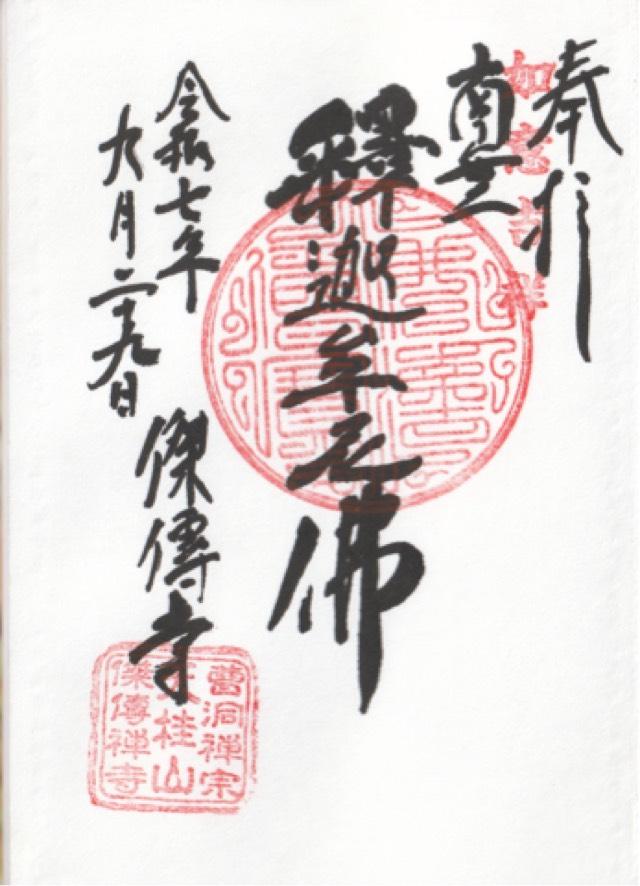 奉拝
如意吉祥
南無
釋迦牟尼佛
令和七年
九月二十九日
傑傳寺
曹洞禅宗
桂山
傑傳禅寺